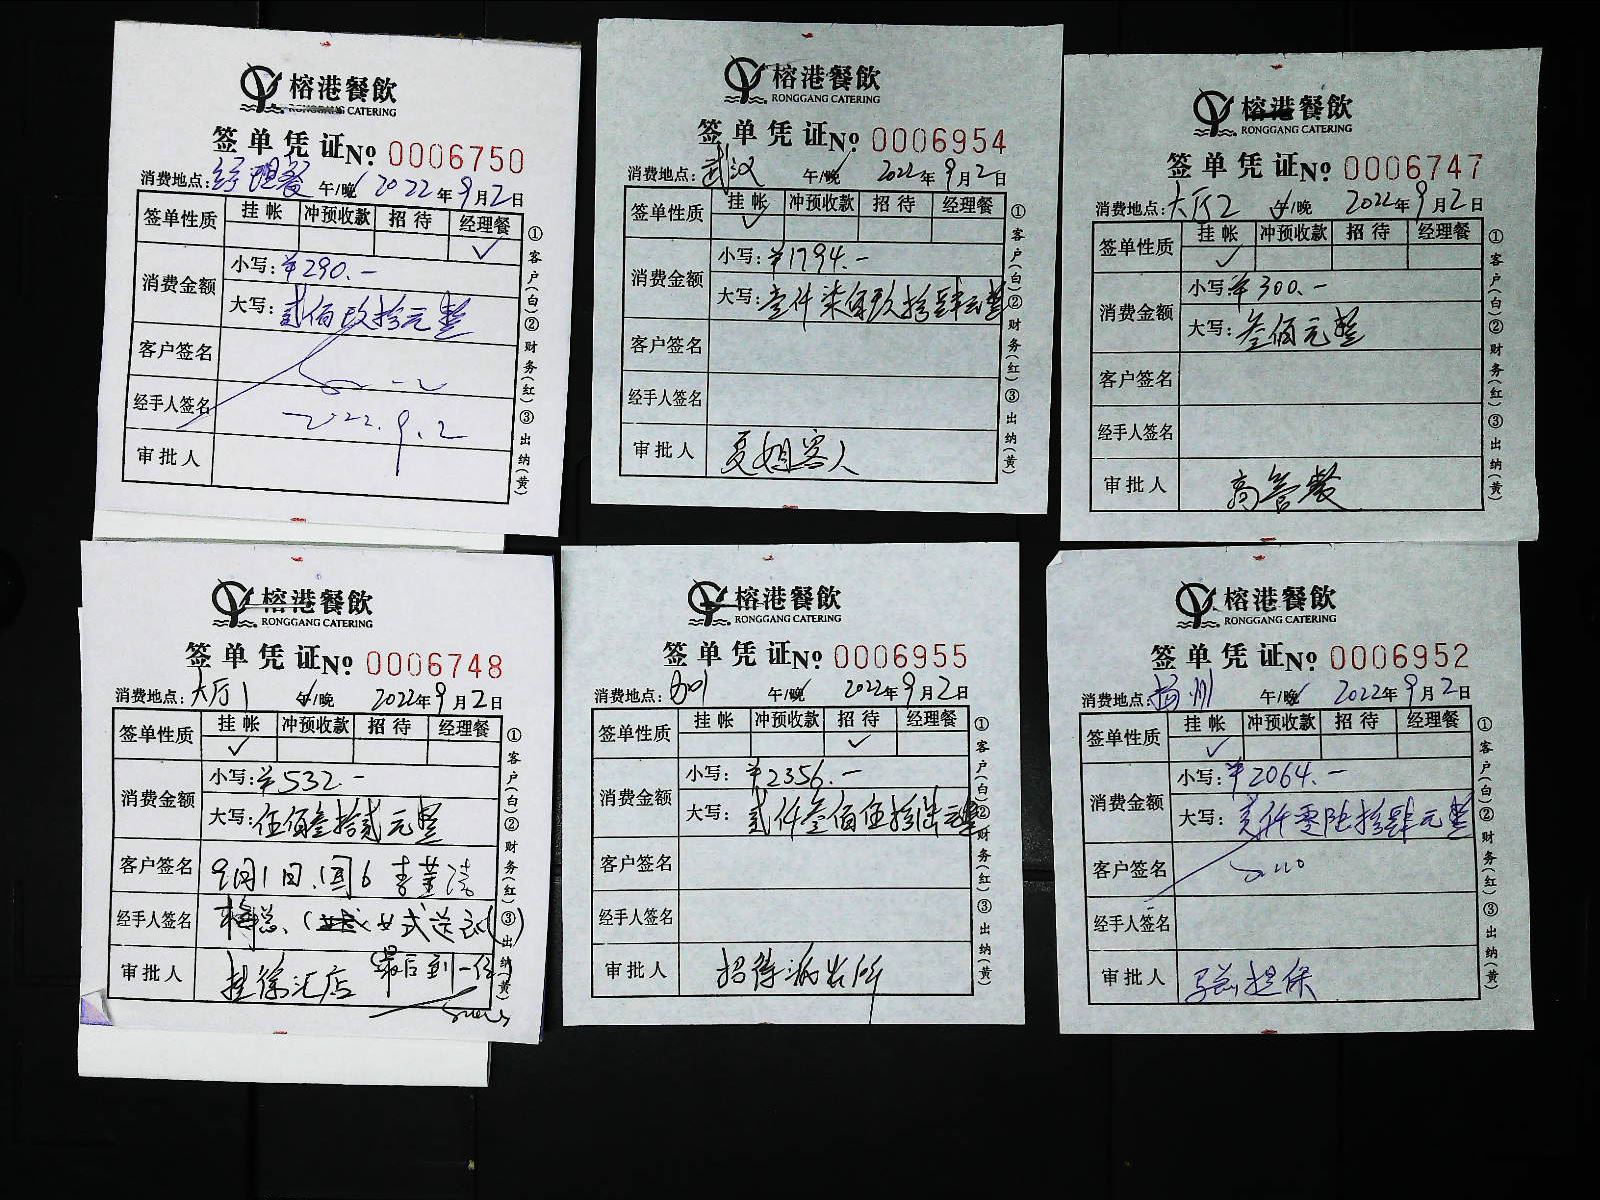 榕港餐飲
RONGGANG CATERING
签单凭证 № 0006750
消费地点: 经理餐 午/晚 2022年9月2日
签单性质 挂帐 冲预收款 招待 经理餐
✓
消费金额 小写: ¥290.-
大写: 贰佰玖拾元整
客户签名
经手人签名 2022.9.2
审批人
①客户(白)②财务(红)③出纳(黄)
榕港餐飲
RONGGANG CATERING
签单凭证 № 0006954
消费地点: 武汉 午/晚 2022年9月2日
签单性质 挂帐 冲预收款 招待 经理餐
✓
消费金额 小写: ¥1794.-
大写: 壹仟柒佰玖拾肆元整
客户签名
经手人签名
审批人 夏姐客人
①客户(白)②财务(红)③出纳(黄)
榕港餐飲
RONGGANG CATERING
签单凭证 № 0006747
消费地点: 大厅2 午/晚 2022年9月2日
签单性质 挂帐 冲预收款 招待 经理餐
✓
消费金额 小写: ¥300.-
大写: 叁佰元整
客户签名
经手人签名
审批人 高管餐
①客户(白)②财务(红)③出纳(黄)
榕港餐飲
RONGGANG CATERING
签单凭证 № 0006748
消费地点: 大厅1 午/晚 2022年9月2日
签单性质 挂帐 冲预收款 招待 经理餐
✓
消费金额 小写: ¥532.-
大写: 伍佰叁拾贰元整
客户签名 9月1日
经手人签名
审批人 挂徐汇店
①客户(白)②财务(红)③出纳(黄)
榕港餐飲
RONGGANG CATERING
签单凭证 № 0006955
消费地点: 午/晚 2022年9月2日
签单性质 挂帐 冲预收款 招待 经理餐
✓
消费金额 小写: ¥2356.-
大写: 贰仟叁佰伍拾陆元整
客户签名
经手人签名
审批人 招待派出所
①客户(白)②财务(红)③出纳(黄)
榕港餐飲
RONGGANG CATERING
签单凭证 № 0006952
消费地点: 扬州 午/晚 2022年9月2日
签单性质 挂帐 冲预收款 招待 经理餐
✓
消费金额 小写: ¥2064.-
大写: 贰仟零陆拾肆元整
客户签名
经手人签名
审批人 担保
①客户(白)②财务(红)③出纳(黄)